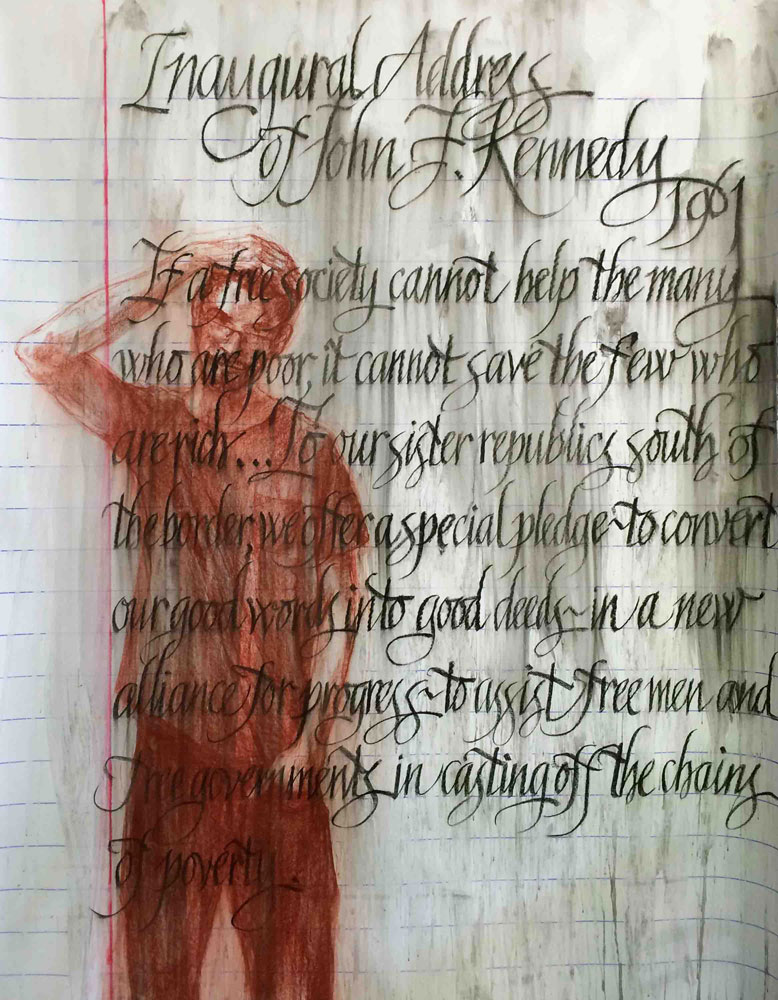 Inaugural Address
of John F. Kennedy
1961
If a free society cannot help the many
who are poor, it cannot save the few who
are rich... To our sister republics south of
the border, we offer a special pledge~to convert
our good words into good deeds~in a new
alliance for progress~to assist free men and
free governments in casting off the chains
of poverty.